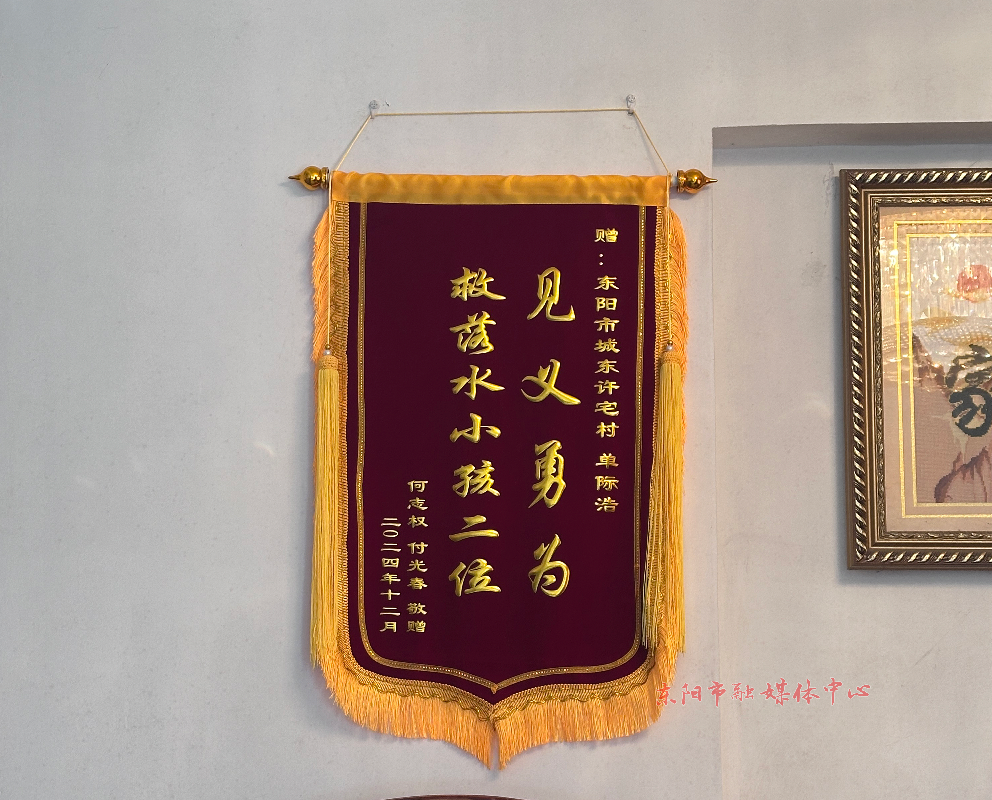 赠：东阳市城东许宅村 单际浩
见义勇为
救落水小孩二位
何志权 付光春 敬赠
二〇二四年十二月
东阳市融媒体中心